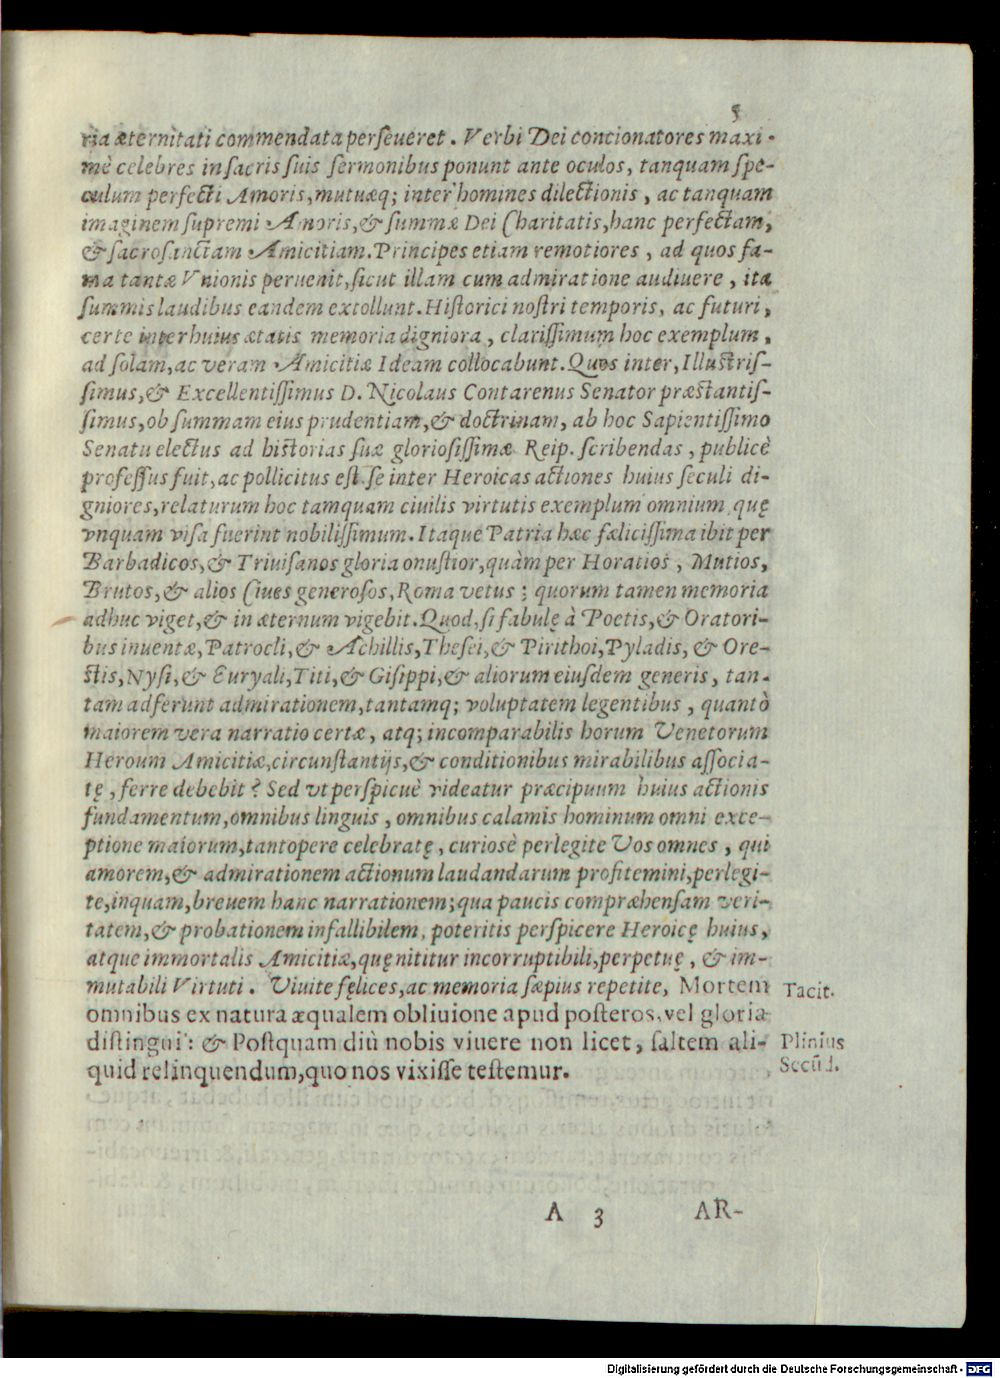 5
ria æternitati commendata perſeueret. Verbi Dei concionatores maxi-
mè celebres in ſacris ſuis ſermonibus ponunt ante oculos, tanquam ſpe-
culum perfecti Amoris, mutuæq; inter homines dilectionis, ac tanquam
imaginem ſupremi Amoris, & ſummæ Dei Charitatis, hanc perfectam,
& ſacroſanctam Amicitiam. Principes etiam remotiores, ad quos fa-
ma tantæ Vnionis peruenit, ſicut illam cum admiratione audiuere, ita
ſummis laudibus eandem extollunt. Hiſtorici noſtri temporis, ac futuri,
certe inter huius ætatis memoria digniora, clariſſimum hoc exemplum,
ad ſolam, ac veram Amicitiæ Ideam collocabunt. Quos inter, Illuſtriſ-
ſimus, & Excellentiſſimus D. Nicolaus Contarenus Senator præſtantiſ-
ſimus, ob ſummam eius prudentiam, & doctrinam, ab hoc Sapientiſſimo
Senatu electus ad hiſtorias ſuæ glorioſiſſimæ Reip. ſcribendas, publicè
profeſſus fuit, ac pollicitus eſt ſe inter Heroicas actiones huius ſeculi di-
gniores, relaturum hoc tamquam ciuilis virtutis exemplum omnium, quę
vnquam viſa fuerint nobiliſſimum. Itaque Patria hæc fæliciſſima ibit per
Barbadicos, & Triuiſanos gloria onuſtior, quàm per Horatios, Mutios,
Brutos, & alios Ciues generoſos, Roma vetus; quorum tamen memoria
adhuc viget, & in æternum vigebit. Quod, ſi fabulę à Poetis, & Oratori-
bus inuentæ, Patrocli, & Achillis, Theſei, & Pirithoi, Pyladis, & Ore-
ſtis, Nyſi, & Euryali, Titi, & Giſippi, & aliorum eiuſdem generis, tan-
tam adferunt admirationem, tantamq; voluptatem legentibus, quantò
maiorem vera narratio certæ, atq; incomparabilis horum Venetorum
Heroum Amicitiæ, circunſtantijs, & conditionibus mirabilibus aſſocia-
tę, ferre debebit? Sed vt perſpicuè videatur præcipuum huius actionis
fundamentum, omnibus linguis, omnibus calamis hominum omni exce-
ptione maiorum, tantopere celebratę, curiosè perlegite Vos omnes, qui
amorem, & admirationem actionum laudandarum profitemini, perlegi-
te, inquam, breuem hanc narrationem; qua paucis compræhenſam veri-
tatem, & probationem infallibilem, poteritis perſpicere Heroicę huius,
atque immortalis Amicitiæ, quę nititur incorruptibili, perpetuę, & im-
mutabili Virtuti. Viuite fęlices, ac memoria ſæpius repetite, Mortem
Tacit.
omnibus ex natura æqualem obliuione apud poſteros, vel gloria
diſtingui: & Poſtquam diù nobis viuere non licet, ſaltem ali-
Plinius
quid relinquendum, quo nos vixiſſe teſtemur.
Secūd.
A 3 AR-
Digitalisierung gefördert durch die Deutsche Forschungsgemeinschaft - DFG